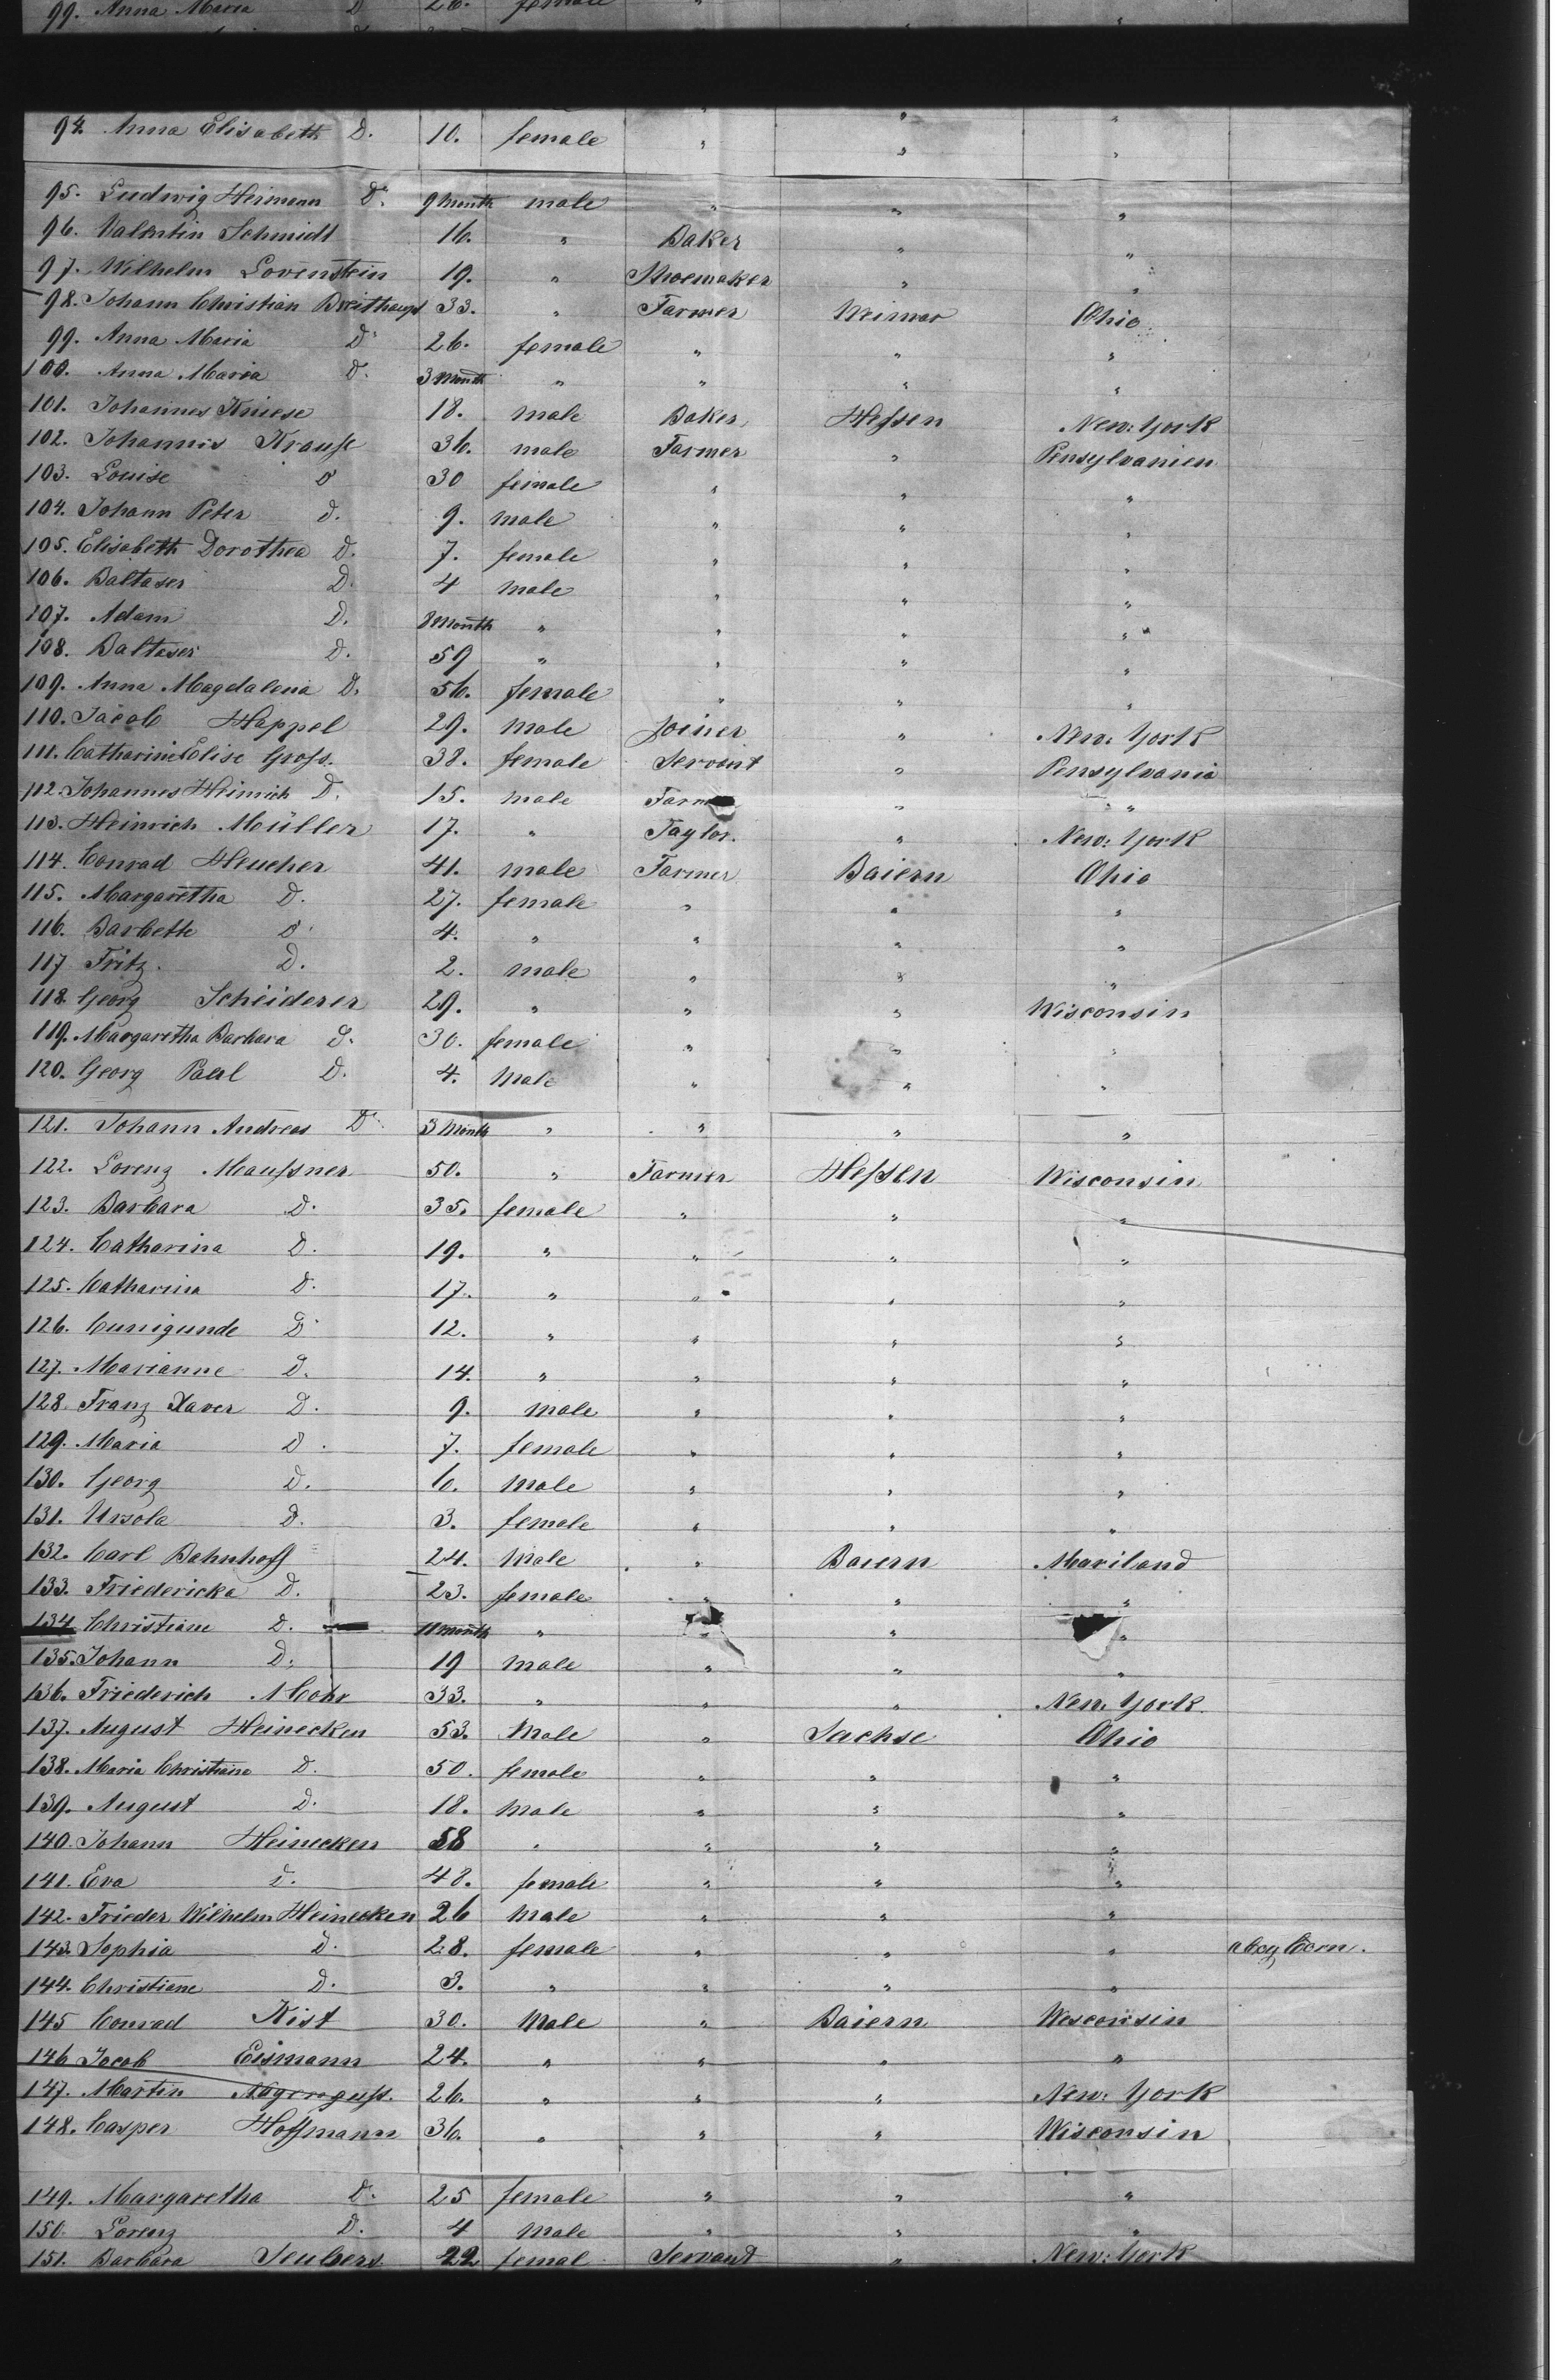 99. Anna Maria D 26. female "
94. Anna Elisabeth D. 10. female " " "
95. Ludwig Hermann D. 9 month male " " "
96. Valentin Schmidt 16. " Baker " "
97. Wilhelm Lovenstein 19. " Shoemaker " "
98. Johann Christian Breithaupt 33. " Farmer Weimar Ohio
99. Anna Maria D. 26. female " " "
100. Anna Maria D. 3 Month " " " "
101. Johannes Kniese 18. male Baker Hessen New: York
102. Johannis Krause 36. male Farmer " Pensylvanien
103. Louise D 30 female " " "
104. Johann Peter d. 9. male " " "
105. Elisabeth Dorothea D. 7. female " " "
106. Baltaser D. 4 male " " "
107. Adam D. 8 Month " " " "
108. Baltaser D. 59 " " " "
109. Anna Magdalena D. 56. female " " "
110. Jacob Happel 29. male Joiner " New: York
111. Catharine Elise Gross. 38. female Servant " Pensylvania
112. Johannes Heinrich D. 15. male Farmer " "
113. Heinrich Müller 17. " Taylor. " New: York
114. Conrad Heucher 41. male Farmer Baiern Ohio
115. Margaretha D. 27. female " " "
116. Barbette D. 4. " " " "
117 Fritz. D. 2. male " " "
118. Georg Scheiderer 29. " " " Wisconsin
119. Margaretha Barbara D. 30. female " " "
120. Georg Paul D. 4. Male " " "
121. Johann Andreas D. 3 Month " " " "
122. Lorenz Maussner 50. " Farmer Hessen Wisconsin
123. Barbara D. 35. female " " "
124. Catharina D. 19. " " " "
125. Catharina D. 17. " " " "
126. Cunigunde D. 12. " " " "
127. Marianne D. 14. " " " "
128. Franz Xaver D. 9. male " " "
129. Maria D. 7. female " " "
130. Georg D. 6. Male " " "
131. Ursola D. 3. female " " "
132. Carl Bahnhoff 24. Male " Baiern Mariland
133. Friedericka D. 23. female " " "
134 Christiane D. 11 month " " " "
135. Johann D. 19 male " " "
136. Friederich Mohr 33. " " " New. York.
137. August Heinecken 53. Male " Sachse Ohio
138. Maria Christiane D. 50. female " " "
139. August D. 18. Male " " "
140. Johann Heinecken 58 " " " "
141. Eva d. 48. female " " "
142. Frieder Wilhelm Heinecken 26 Male " " "
143. Sophia D. 28. female " " "
144. Christiane D. 3. " " " "
145 Conrad Kist 30. Male " Baiern Wisconsin
146 Jacob Eismann 24. " " " "
147. Martin 26. " " " New: York
148. Casper Hoffmann 36. " " " Wisconsin
149. Margaretha D. 25 female " " "
150. Lorenz D. 4 Male " " "
151. Barbara Seubers 22 femal Servant " New: York